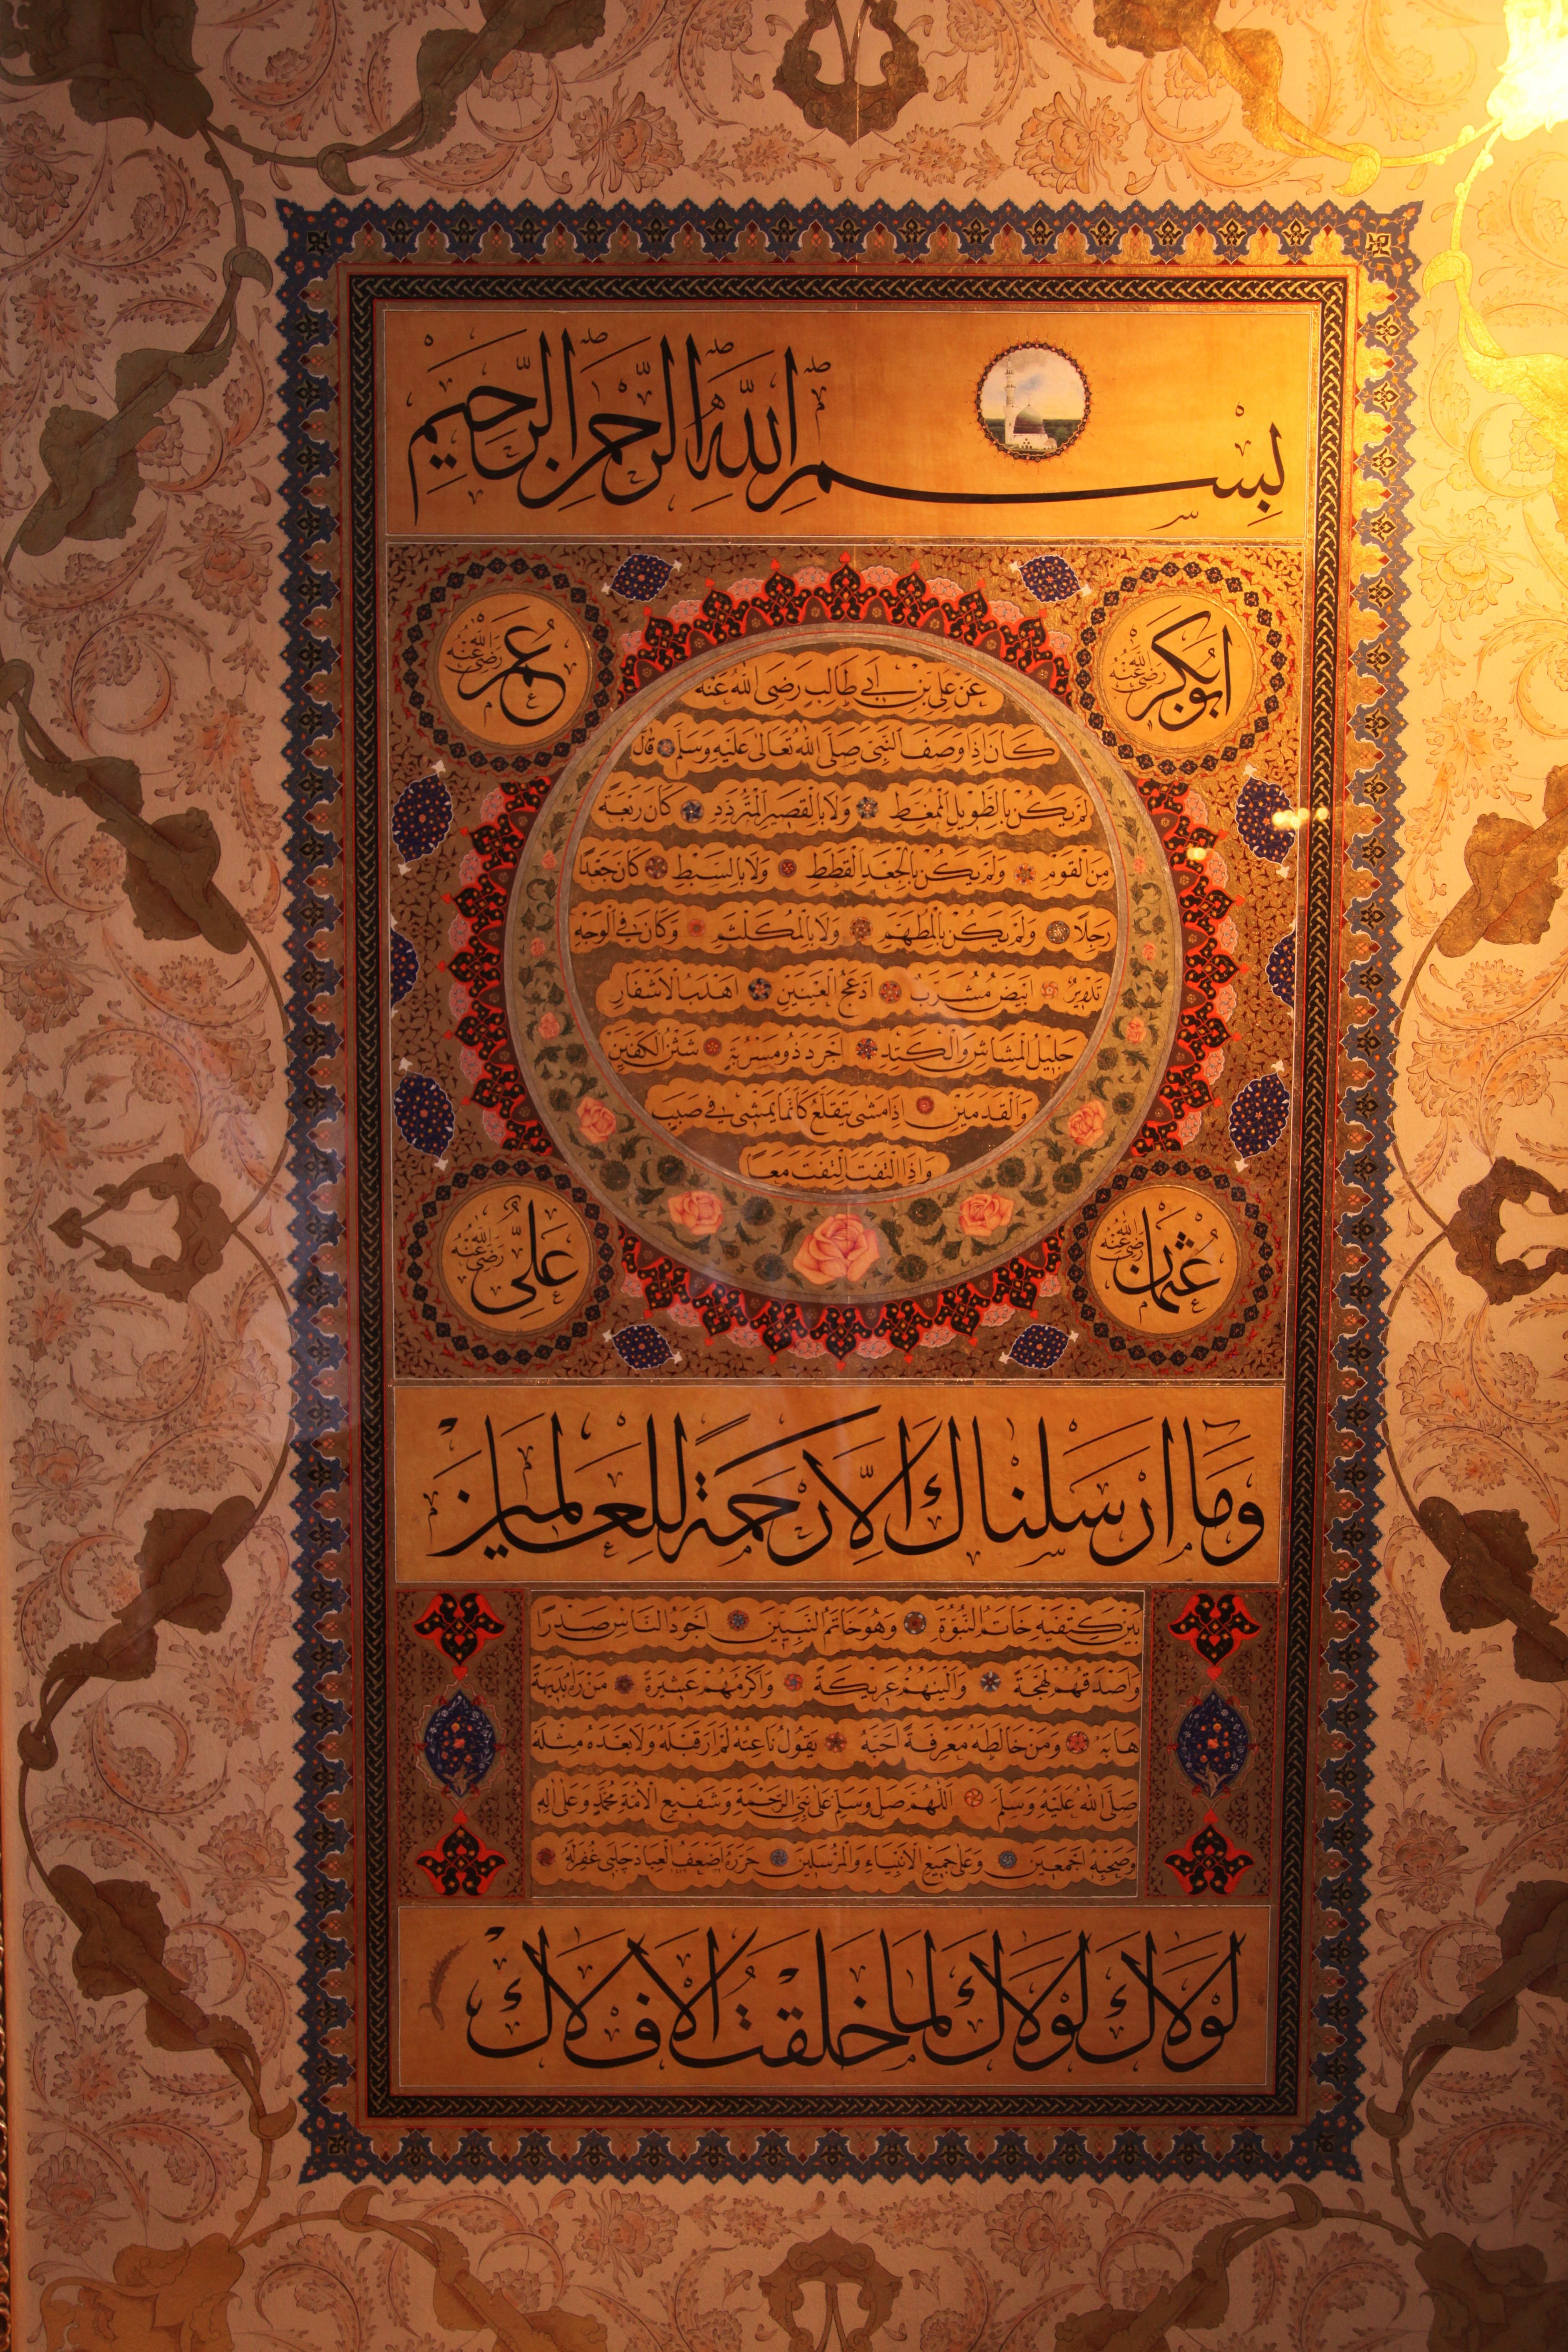 بسم الله الرحمن الرحيم
ابوبكر رضى الله عنه
عمر رضى الله عنه
عن على بن ابى طالب رضى الله عنه
كان اذا وصف النبى صلى الله تعالى عليه وسلم قال
لم يكن بالطويل الممغط ولا بالقصير المتردد كان ربعة
من القوم ولم يكن بالجعد القطط ولا بالسبط كان جعدا
رجلا ولم يكن بالمطهم ولا بالمكلثم وكان فى الوجه
تدوير ابيض مشرب ادعج العينين اهدب الاشفار
جليل المشاش والكتد اجرد ذو مسربة شثن الكفين
والقدمين اذا مشى يتقلع كانما يمشى فى صبب
واذا التفت التفت معا
عثمان رضى الله عنه
على رضى الله عنه
وما ارسلناك الا رحمة للعالمين
بين كتفيه خاتم النبوة وهو خاتم النبيين اجود الناس صدرا
واصدقهم لهجة والينهم عريكة واكرمهم عشيرة من راه بديهة
هابه ومن خالطه معرفة احبه يقول ناعته لم ار قبله ولا بعده مثله
صلى الله عليه وسلم اللهم صل وسلم على نبى الرحمة وشفيع الامة محمد وعلى اله
وصحبه اجمعين وعلى جميع الانبياء والمرسلين حرره اضعف العباد چلبى غفرله
لولاك لولاك لما خلقت الافلاك